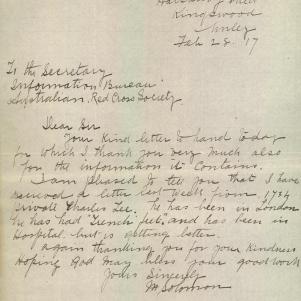 Kingswood
Unley
Feb 28. 17
To the Secretary
Information Bureau
Australian Red Cross Society
Dear Sir
Your Kind letter to hand today
for which I thank you very much also
for the information it contains.
I am pleased to tell you that I have
received a letter last week from 1754
Private Charles Lee. he has been in London
he has had "Trench feet" and has been in
Hospital but is getting better.
again thanking you for your Kindness
Hoping God may bless your good work
Yours Sincerely
M Solomon